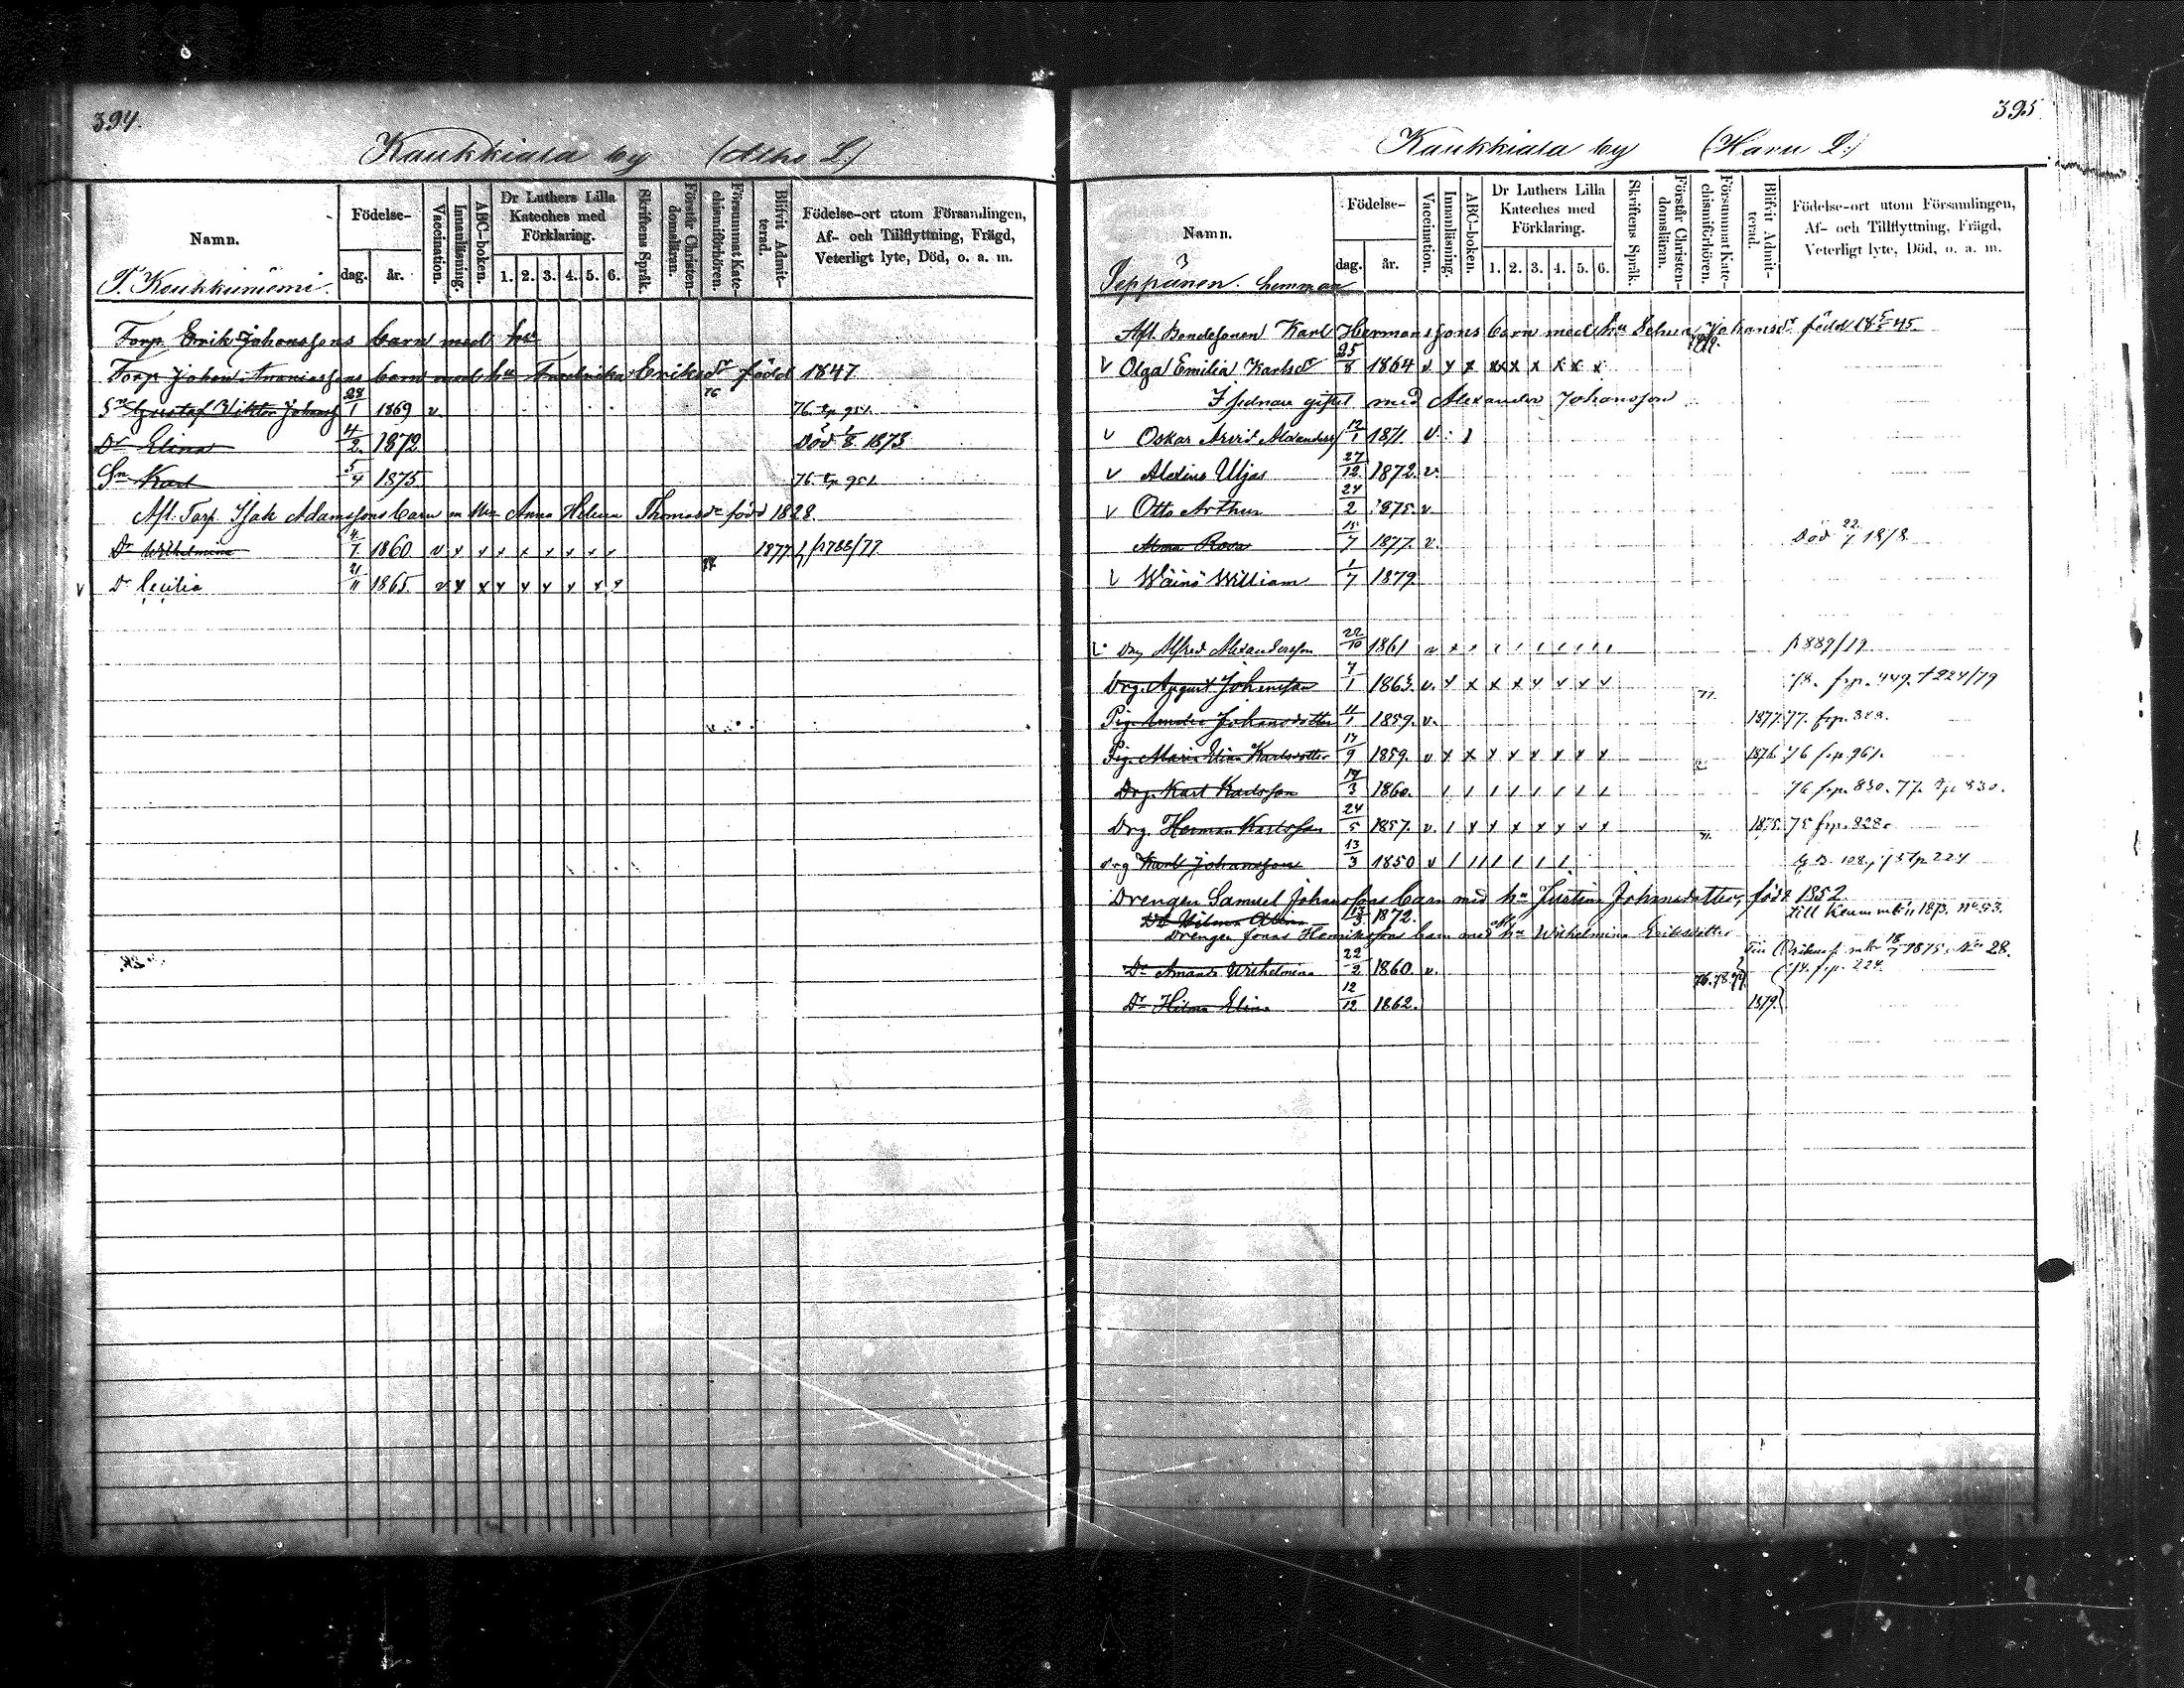 394.
Kaukkiala by (Alho L.)
Namn.
Födelse-
dag.
år.
Vaccination.
Innanläsning.
ABC-boken.
Dr Luthers Lilla Kateches med Förklaring.
1. 2. 3. 4. 5. 6.
Skriftens Språk.
Förstår Christendomsläran.
Försummat Katechismiförhören.
Blifvit Admitterad.
Födelse-ort utom Församlingen, Af- och Tillflyttning, Frägd, Veterligt lyte, Död, o. a. m.
T. Koukkuniemi.
Torp. Erik Johanssons barn med hu
Torp. Johan Ananiassons barn med hu Fredrika Eriksdr född 1847
Sn Gustaf Viktor Johanss 28/1 1869 v 76 76. tp 951.
Dr Elina 4/2 1872 Död 1873
Sn Karl 5/4 1875 76. tp 951
Afl. Torp. Isak Adamssons barn m Anna Helena Thomasdr född 1828.
Dr Wilhelmina 1860 v x x x x x x x x 1877
v Dr Cecilia 21/11 1865. v x x x x x x x x
395
Kaukkiala by (Haru L.)
Namn.
Födelse-
dag.
år.
Vaccination.
Innanläsning.
ABC-boken.
Dr Luthers Lilla Kateches med Förklaring.
1. 2. 3. 4. 5. 6.
Skriftens Språk.
Förstår Christendomsläran.
Försummat Katechismiförhören.
Blifvit Admitterad.
Födelse-ort utom Församlingen, Af- och Tillflyttning, Frägd, Veterligt lyte, Död, o. a. m.
3
Seppänen. hemman
Afl. Bondesonen Karl Hermanssons barn med hu Johansdr född 45.
v Olga Emilia Karlsdr 25/8 1864 v x x x x x x x x
I sednare giftet med Alexander Johansson
v Oskar Arvid Alexanders 12/1 1871. v.
v Aleksius Uljas 27/12 1872. v.
v Otto Arthur 24/2 1875. v
Alma Rosa 15/7 1877. v. Död 22/7 1878
v Wäinö William 1/7 1879
Drg Alfred Alexandersson 22/10 1861 v p 889/79
Drg. August Johansson 7/1 1863. v. x x x x x x x x 78. frp. 449. 224/79
Pig. Johansdotter 11/1 1859. v. 1877. 77. frp. 323.
Pig. Maria Elina Karlsdotter 17/9 1859. v x x x x x x x x 1876. 76 frp. 961.
Drg. Karl Karlsson 19/3 1860. 76 frp. 830. 77. tp. 830.
Drg. Herman Karlsson 24/5 1857. v. 1875. 75 frp. 828.
Drg Karl Johansson 13/3 1850 v 75 tp 224
Drengen Samuel Johanssons barn med hu Justina Johansdotter, född 1852.
Dr Wilma Alina 13/3 1872. till 1873. No 53.
Drengen Jonas Henrikssons barn med hu Wilhelmina Eriksdotter
Dr Amanda Wilhelmina 22/2 1860. v. 18/7 1875. No 28.
74. frp. 224.
76. 78. 79.
Dr Hilma Elina 12/12 1862. 1879.